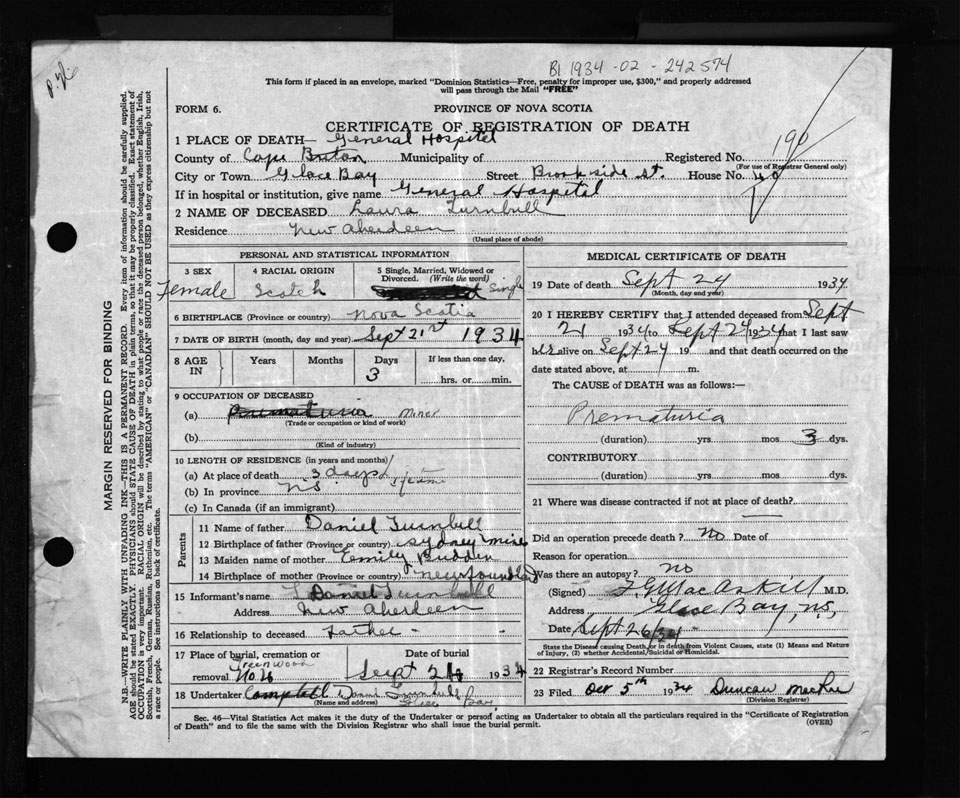 B1 1934-02-242574
This form if placed in an envelope, marked "Dominion Statistics—Free, penalty for improper use, $300," and properly addressed
will pass through the Mail "FREE"
FORM 6.
PROVINCE OF NOVA SCOTIA
CERTIFICATE OF REGISTRATION OF DEATH
1 PLACE OF DEATH— General Hospital
190
County of Cape Breton Municipality of Registered No.
(For use of Registrar General only)
City or Town Glace Bay Street Brookside st. House No. 40
If in hospital or institution, give name General Hospital
2 NAME OF DECEASED Laura Turnbull
Residence New Aberdeen
(Usual place of abode)
PERSONAL AND STATISTICAL INFORMATION
3 SEX
Female
4 RACIAL ORIGIN
Scotch
5 Single, Married, Widowed or Divorced. (Write the word)
Single
6 BIRTHPLACE (Province or country) Nova Scotia
7 DATE OF BIRTH (month, day and year) Sept 21st 1934
8 AGE IN
Years Months Days If less than one day,
3 hrs. or min.
9 OCCUPATION OF DECEASED
(a) Miner
(Trade or occupation or kind of work)
(b)
(Kind of industry)
10 LENGTH OF RESIDENCE (in years and months)
(a) At place of death 3 days
(b) In province N.S.
(c) In Canada (if an immigrant)
Parents
11 Name of father Daniel Turnbull
12 Birthplace of father (Province or country) Sydney Mine
13 Maiden name of mother Emily Budden
14 Birthplace of mother (Province or country) Newfoundland
15 Informant's name Daniel Turnbull
Address New Aberdeen
16 Relationship to deceased Father
17 Place of burial, cremation or removal Greenwood
Date of burial
Sept 1934
18 Undertaker Turnbull
(Name and address) Glace Bay
MEDICAL CERTIFICATE OF DEATH
19 Date of death Sept 24 1934
(Month, day and year)
20 I HEREBY CERTIFY that I attended deceased from Sept
21 1934 to Sept 24 1934 that I last saw
her alive on Sept 24 19 and that death occurred on the
date stated above, at m.
The CAUSE OF DEATH was as follows:—
Prematuria
(duration) yrs. mos. 3 dys.
CONTRIBUTORY
(duration) yrs. mos. dys.
21 Where was disease contracted if not at place of death?
Did an operation precede death? No Date of
Reason for operation
Was there an autopsy? no
(Signed) MacAskill M.D.
Address Glace Bay, N.S.
Date Sept 26/34
State the Disease causing Death, or in death from Violent Causes, state (1) Means and Nature of Injury, (2) whether Accidental, Suicidal or Homicidal.
22 Registrar's Record Number
23 Filed Oct 5th 1934 Duncan
(Division Registrar)
Sec. 46—Vital Statistics Act makes it the duty of the Undertaker or person acting as Undertaker to obtain all the particulars required in the "Certificate of Registration
of Death" and to file the same with the Division Registrar who shall issue the burial permit.
(OVER)
MARGIN RESERVED FOR BINDING
N.B.—WRITE PLAINLY, WITH UNFADING INK—THIS IS A PERMANENT RECORD. Every item of information should be carefully supplied.
AGE should be stated EXACTLY. PHYSICIANS should STATE CAUSE OF DEATH in plain terms, so that it may be properly classified. Exact statement of
OCCUPATION is very important. RACIAL ORIGIN will be described by stating to what people or race the deceased person belonged, whether English, Irish,
Scottish, French, German, Russian, Ruthenian, etc. The terms "AMERICAN" or "CANADIAN" SHOULD NOT BE USED as they express citizenship but not
a race or people. See instructions on back of certificate.